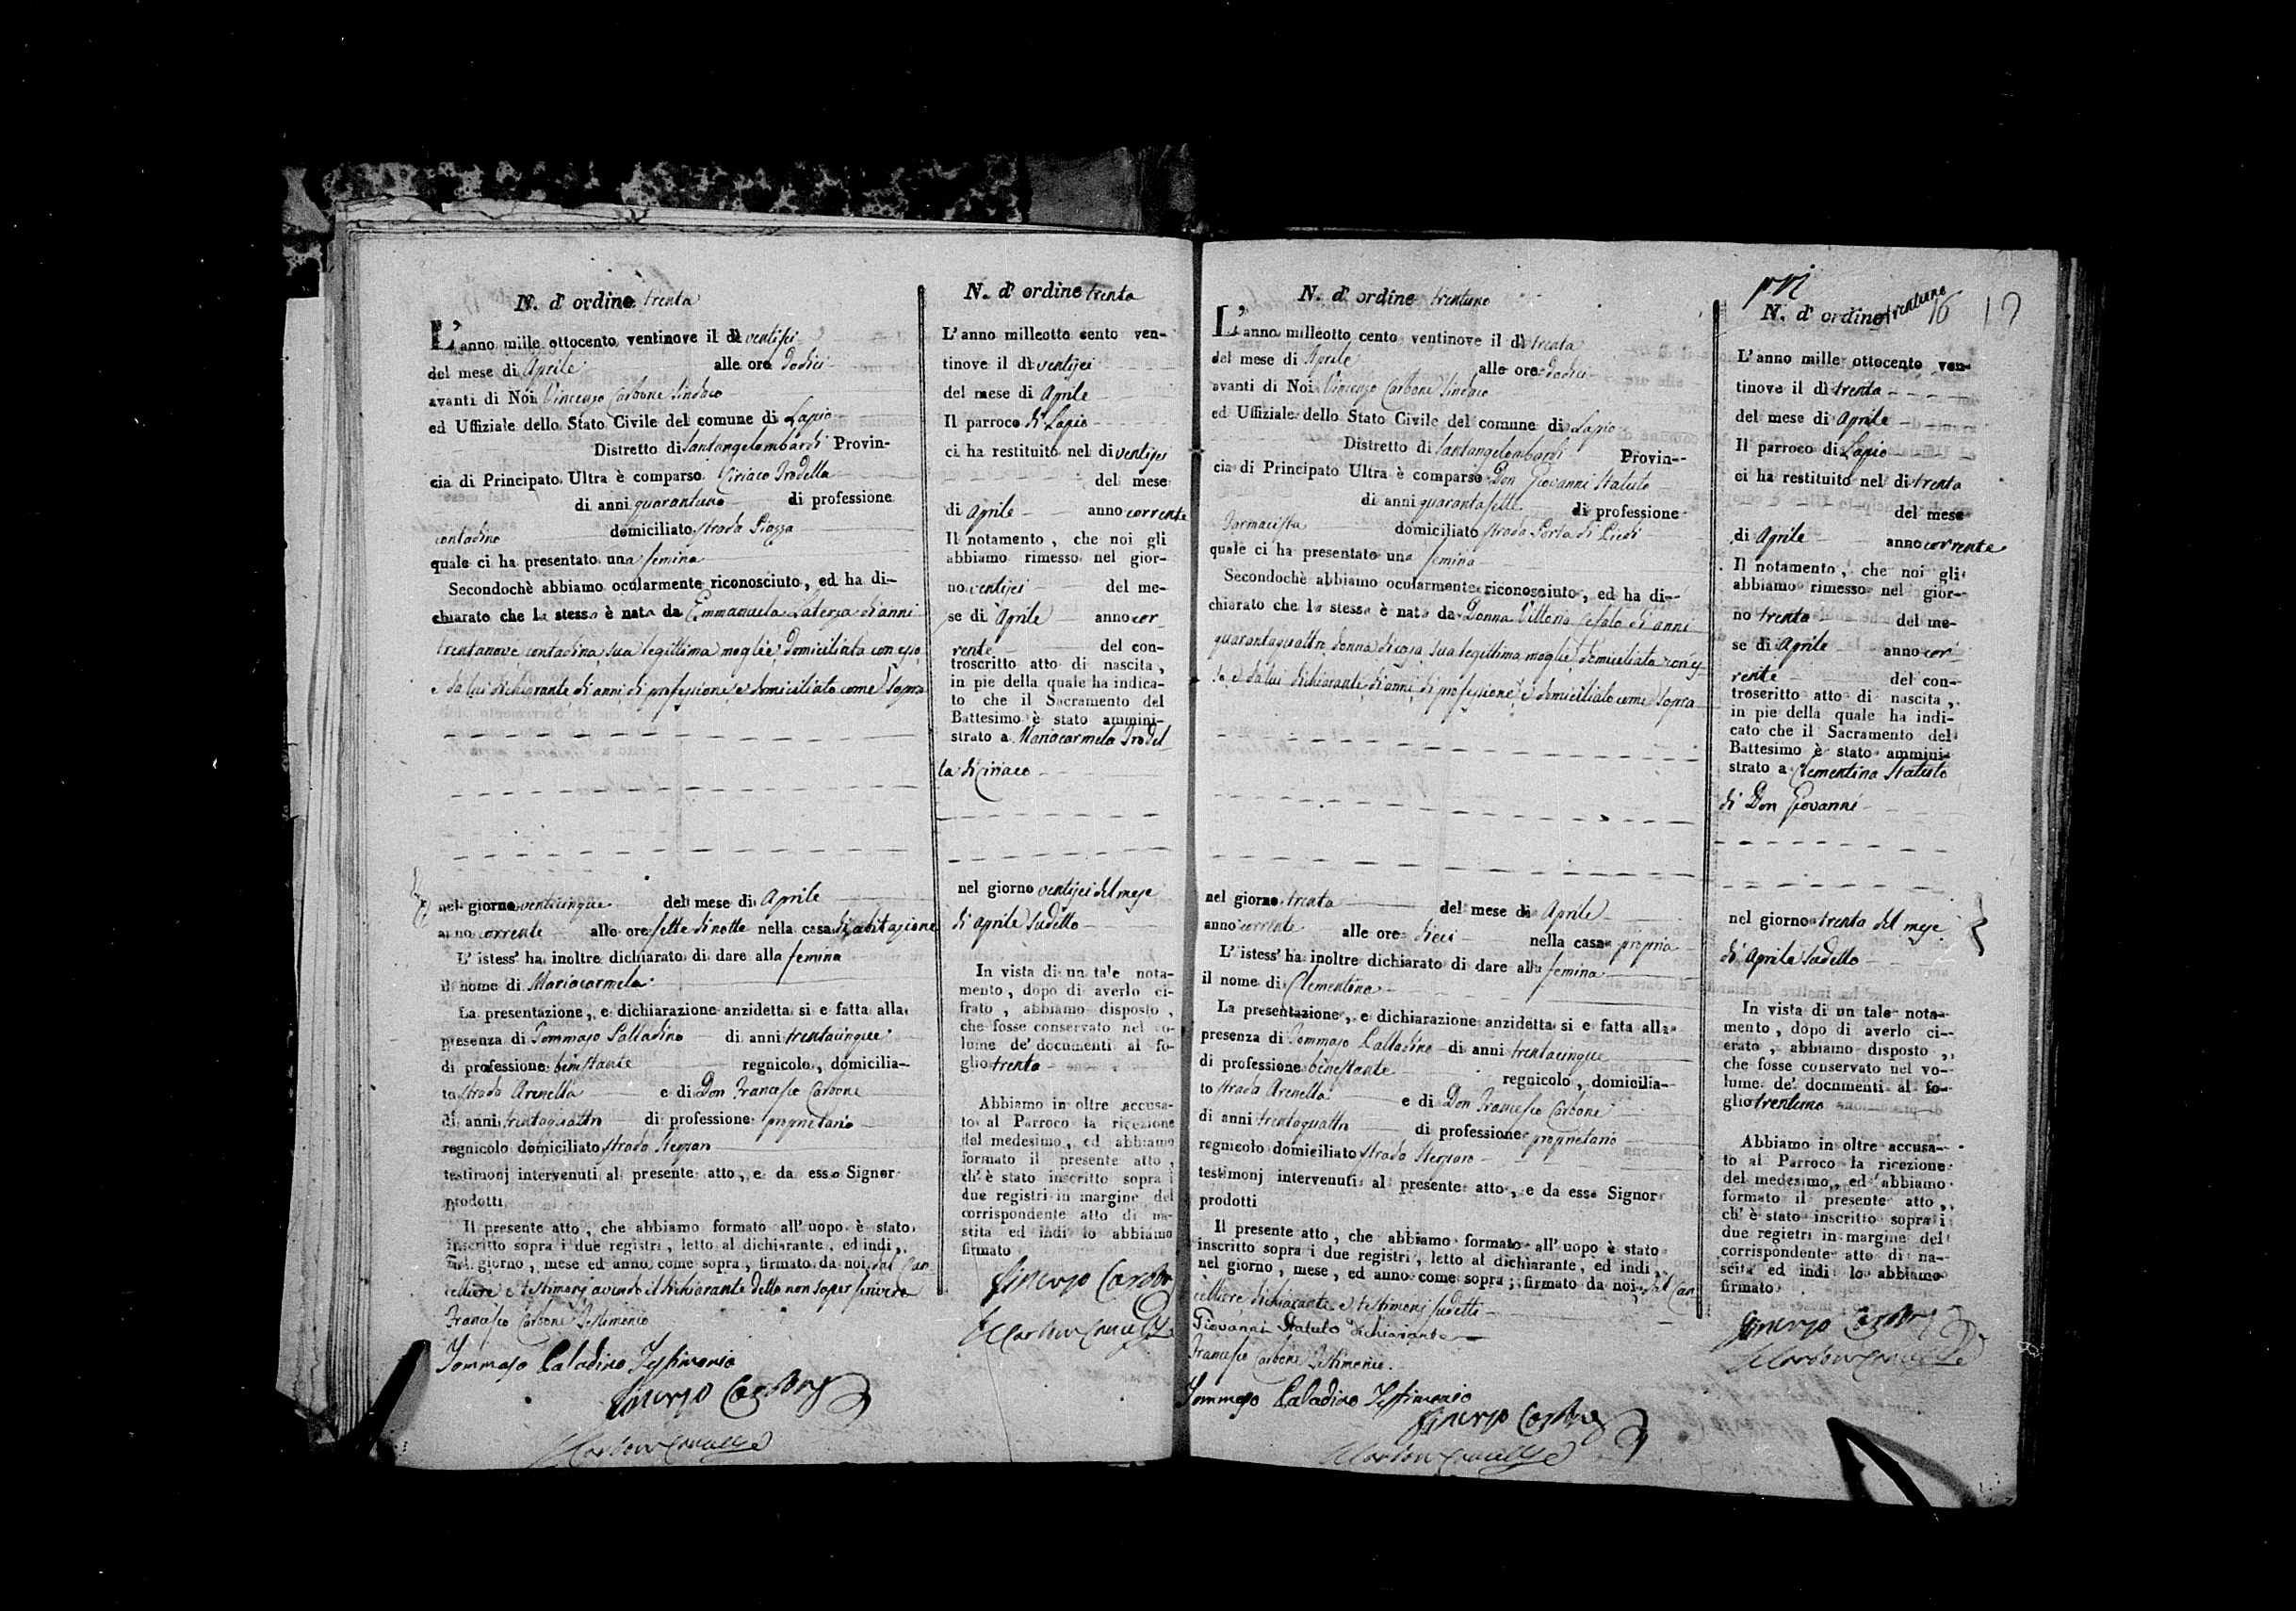 N. d' ordine trenta
L'anno mille ottocento ventinove il dì ventisei
del mese di Aprile alle ore dodici
avanti di Noi Vincenzo Carbone Sindaco
ed Uffiziale dello Stato Civile del comune di Lapio
Distretto di Santangelombardi Provin-
cia di Principato Ultra è comparso Ciriaco Trodella
di anni quarantuno di professione
contadino domiciliato strada Piazza
quale ci ha presentato una femina
Secondochè abbiamo ocularmente riconosciuto, ed ha di-
chiarato che la stessa è nata da Emmanuela Laterza di anni
trentanove contadina sua legittima moglie domiciliata con esso
e da lui dichiarante di anni di professione e domiciliato come sopra
nel giorno venticinque del mese di Aprile
anno corrente alle ore sette di notte nella casa di abitazione
L' istess' ha inoltre dichiarato di dare alla femina
il nome di Mariacarmela
La presentazione, e dichiarazione anzidetta si e fatta alla
presenza di Tommaso Palladino di anni trentacinque
di professione benestante regnicolo, domicilia-
to strada Arenella e di Don Francesco Carbone
di anni trentaquattro di professione proprietario
regnicolo domiciliato strada
testimonj intervenuti al presente atto, e da esso Signor
prodotti
Il presente atto, che abbiamo formato all' uopo è stato
inscritto sopra i due registri, letto al dichiarante, ed indi,
nel giorno, mese ed anno come sopra, firmato da noi, dal Can
celliere e testimonj avendo il dichiarante detto non saper scrivere
Francesco Carbone Testimonio
Tommaso Paladino Testimonio
Vincenzo Carbone
N. d' ordine trenta
L'anno milleotto cento ven-
tinove il dì ventisei
del mese di Aprile
Il parroco di Lapio
ci ha restituito nel di ventisei
del mese
di Aprile anno corrente
Il notamento, che noi gli
abbiamo rimesso nel gior-
no ventisei del me-
se di Aprile anno cor
rente del con-
troscritto atto di nascita,
in pie della quale ha indica-
to che il Sacramento del
Battesimo è stato ammini-
strato a Mariacarmela Trodel
la di Ciriaco
nel giorno ventisei del mese
di Aprile sudetto
In vista di un tale nota-
mento, dopo di averlo ci-
frato, abbiamo disposto,
che fosse conservato nel vo-
lume de' documenti al fo-
glio trenta
Abbiamo in oltre accusa-
to al Parroco la ricezione
del medesimo, ed abbiamo
formato il presente atto,
ch' è stato inscritto sopra i
due registri in margine del
corrispondente atto di na-
scita ed indi lo abbiamo
firmato
Vincenzo Carbone
N. d' ordine trentuno
L'anno milleotto cento ventinove il dì trenta
del mese di Aprile alle ore dodici
avanti di Noi Vincenzo Carbone Sindaco
ed Uffiziale dello Stato Civile del comune di Lapio
Distretto di Santangelombardi Provin-
cia di Principato Ultra è comparso Don Giovanni Statuto
di anni quarantasette di professione
Farmacista domiciliato strada Porta di Piedi
quale ci ha presentato una femina
Secondochè abbiamo ocularmente riconosciuto, ed ha di-
chiarato che la stessa è nata da Donna Vittoria Cefalo di anni
quarantaquattro donna di casa sua legittima moglie domiciliata con es
so e da lui dichiarante di anni di professione e domiciliato come sopra
nel giorno trenta del mese di Aprile
anno corrente alle ore dieci nella casa propria
L' istess' ha inoltre dichiarato di dare alla femina
il nome di Clementina
La presentazione, e dichiarazione anzidetta si e fatta alla
presenza di Tommaso Palladino di anni trentacinque
di professione benestante regnicolo, domicilia-
to strada Arenella e di Don Francesco Carbone
di anni trentaquattro di professione proprietario
regnicolo domiciliato strada
testimonj intervenuti al presente atto, e da esso Signor
prodotti
Il presente atto, che abbiamo formato all' uopo è stato
inscritto sopra i due registri, letto al dichiarante, ed indi,
nel giorno, mese, ed anno come sopra, firmato da noi, dal Can
celliere, dichiarante e testimonj sudetti
Giovanni Statuto dichiarante
Francesco Carbone Testimonio.
Tommaso Paladino Testimonio
Vincenzo Carbone
N. d' ordine trentuno
16 17
L' anno mille ottocento ven-
tinove il dì trenta
del mese di Aprile
Il parroco di Lapio
ci ha restituito nel di trenta
del mese
di Aprile anno corrente
Il notamento, che noi gli
abbiamo rimesso nel gior-
no trenta del me-
se di Aprile anno cor
rente del con-
troscritto atto di nascita,
in pie della quale ha indi-
cato che il Sacramento del
Battesimo è stato ammini-
strato a Clementina Statuto
di Don Giovanni
nel giorno trenta del mese
di Aprile sudetto
In vista di un tale nota-
mento, dopo di averlo ci-
erato, abbiamo disposto,
che fosse conservato nel vo-
lume de' documenti al fo-
glio trentuno
Abbiamo in oltre accusa-
to al Parroco la ricezione
del medesimo, ed abbiamo
formato il presente atto,
ch' è stato inscritto sopra i
due registri in margine del
corrispondente atto di na-
scita ed indi lo abbiamo
firmato
Vincenzo Carbone